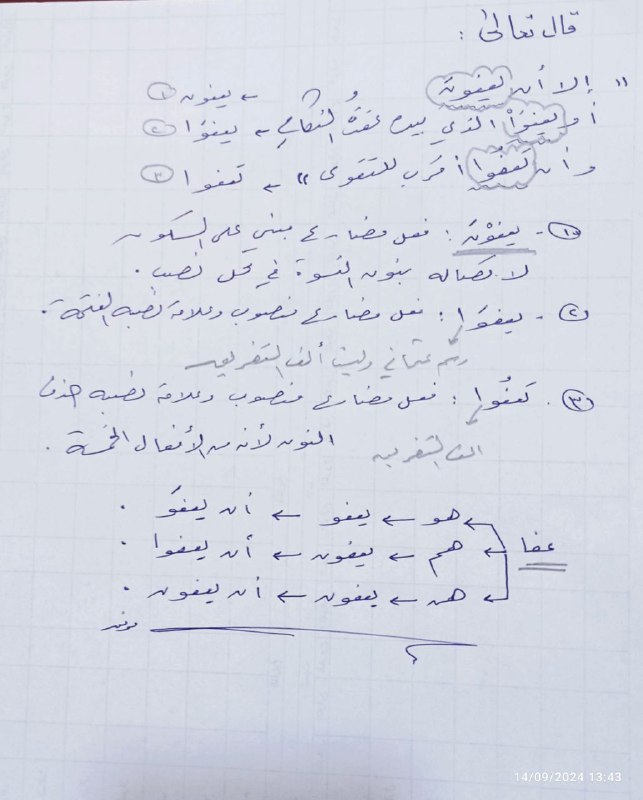 قال تعالى :
" إلا أن يعفونَ ← يعفون ①
أو يعفوَا الذي بيده عقدةُ النكاح ← يعفوَا ②
وأن تعفُوا أقرب للتقوى " ← تعفوا ③
①- يعفوْنَ : فعل مضارع مبني على السكون
لاتصاله بنون النسوة في محل نصب .
②- يعفوَا : فعل مضارع منصوب وعلامة نصبه الفتحة .
رسم عثماني وليست ألف التفريق
③. تعفُوا : فعل مضارع منصوب وعلامة نصبه حذف
النون لأنه من الأفعال الخمسة .
ألف التفريق
هو ← يعفو ← أن يعفوَ .
عفا ← هم ← يعفون ← أن يعفوا .
هن ← يعفون ← أن يعفون .
14/09/2024 13:43